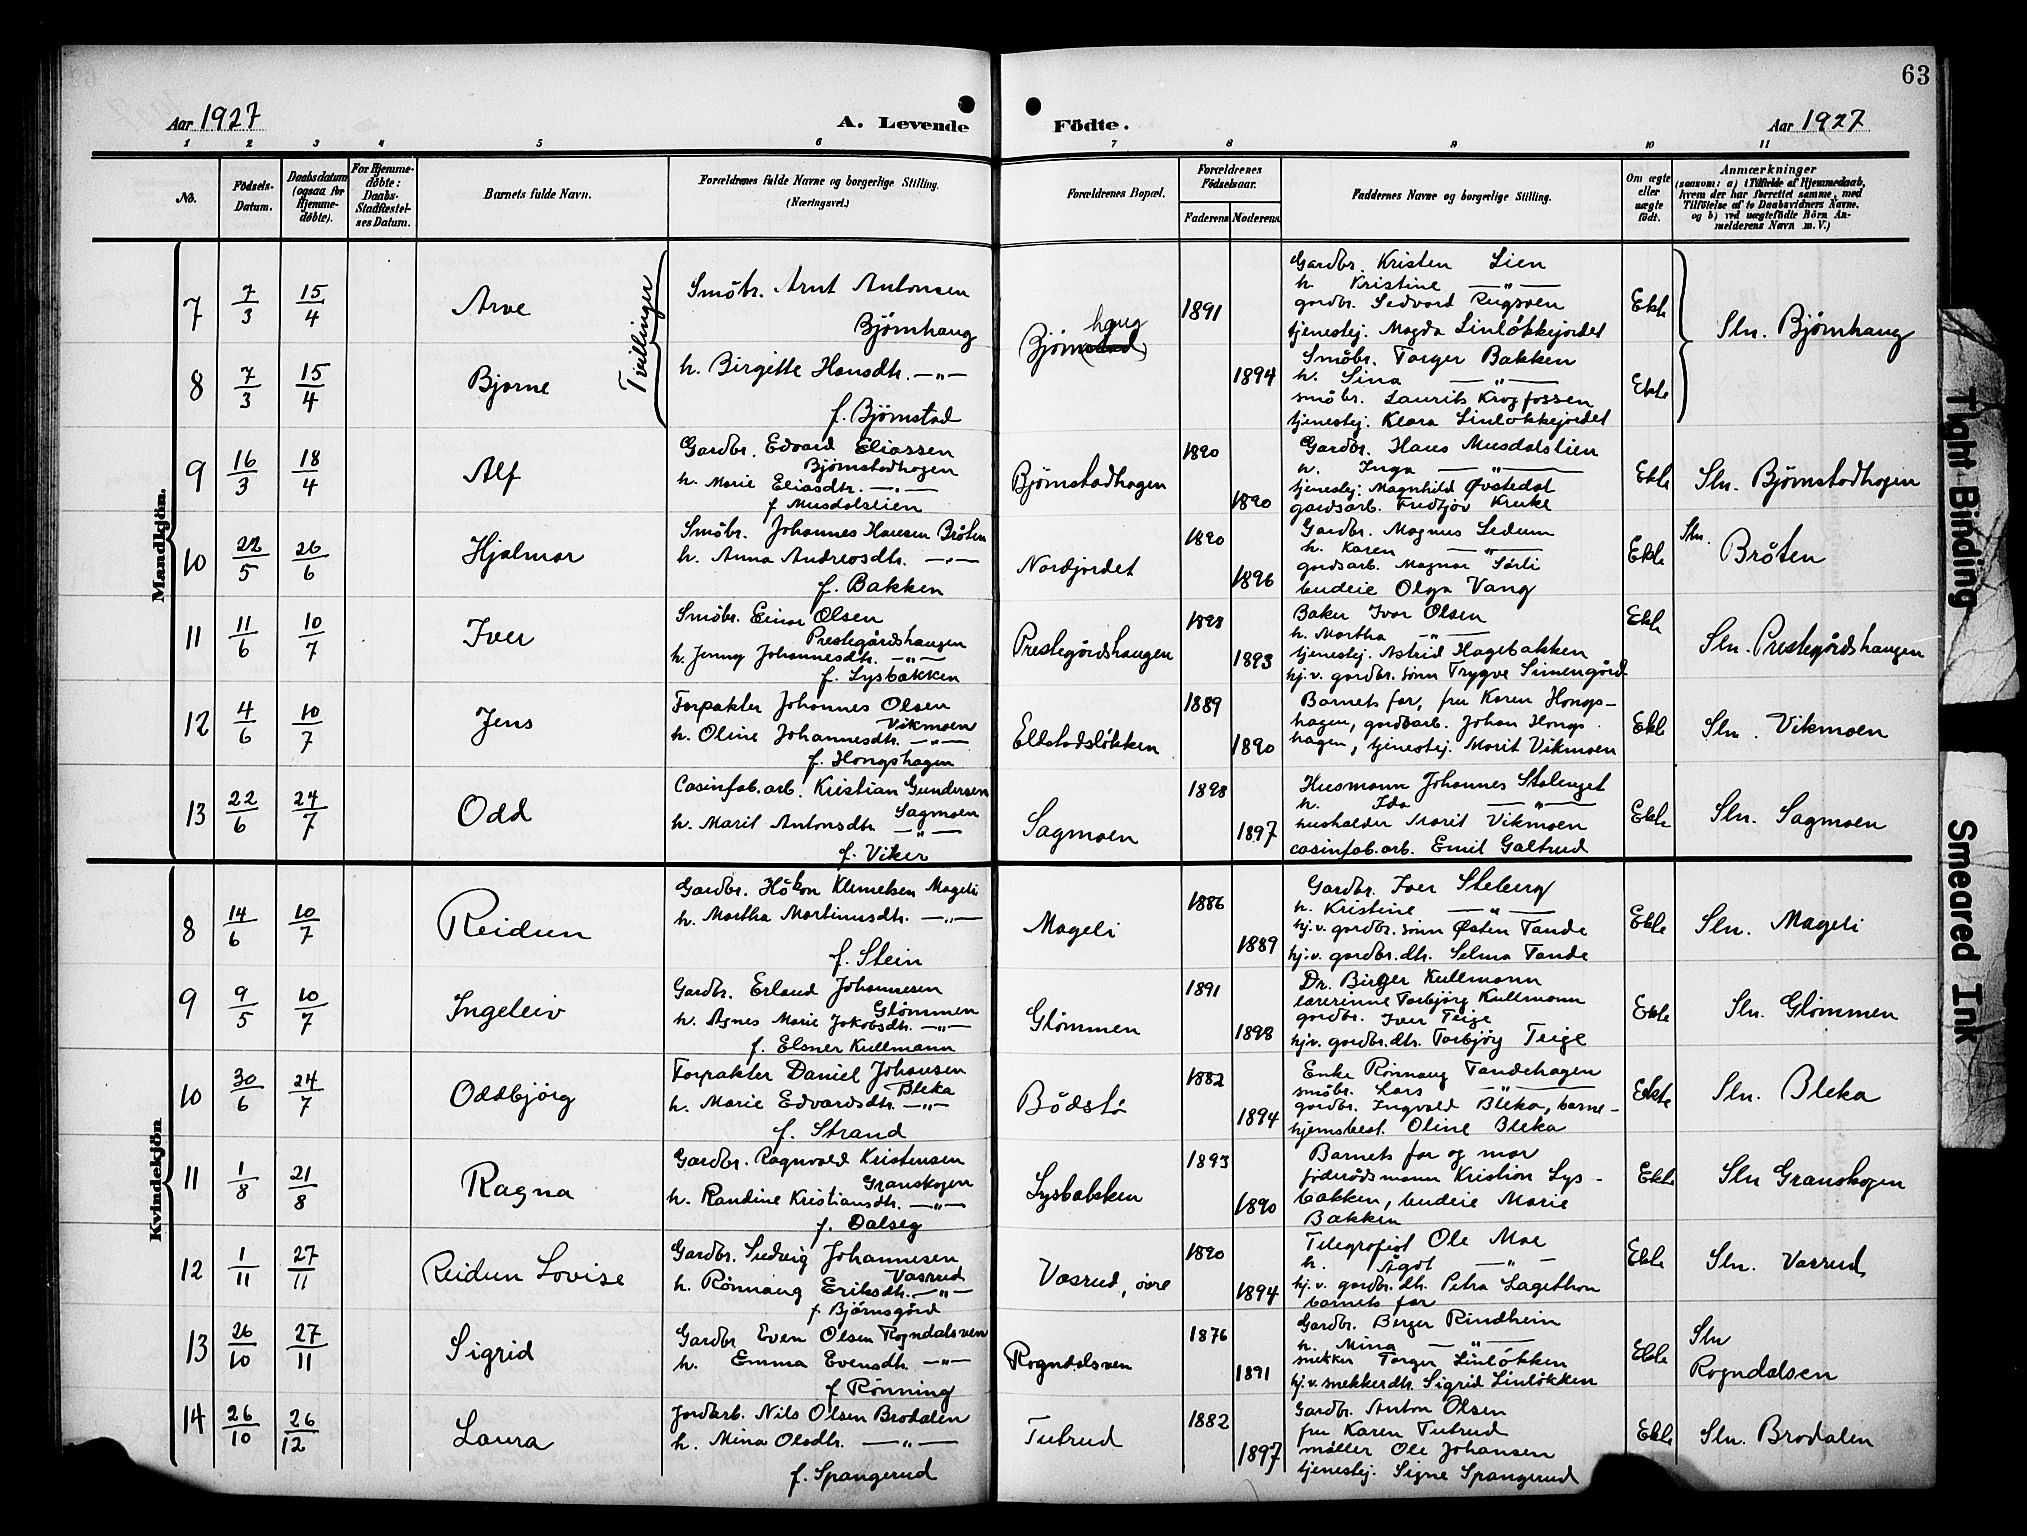 63
Aar 1927 A. Levende Födte. Aar 1927
1 2 3 4 5 6 7 8 9 10 11
No.
Födsels-
Datum.
Daabsdatum
(ogsaa for
Hjemme-
døbte).
For Hjemme-
døbte:
Daabs-
Stadfæstel-
ses Datum.
Barnets fulde Navn.
Forældrenes fulde Navne og borgerlige Stilling.
(Næringsvei.)
Forældrenes Bopæl.
Forældrenes
Fødselsaar.
Faderens. Moderens.
Faddernes Navne og borgerlige Stilling.
Om ægte
eller
uægte
født.
Anmærkninger
(saasom: a) i Tilfælde af Hjemmedaab,
hvem der har forrettet samme, med
Tilføielse af to Daabsvidners Navne.
og b) ved uægtefødte Börn An-
melderens Navn m. V.)
Mandkjön.
7 7/3 15/4 Arve
Tvillinger
Småbr. Arnt Antonsen
Bjørnhaug
Bjørnstad haug
1891
Gardbr. Kristen Lien
h. Kristine —"—
gardbr. Sedvard Rugsveen
tjenestej. Magda Linløkkejordet
Ekte
Sln. Bjørnhaug
8 7/3 15/4 Bjarne
h. Birgitte Hansdtr. —"—
f. Bjørnstad
1894
Småbr. Torger Bakken
h. Sina —"—
småbr. Laurits Krogfossen
tjenestej. Klara Linløkkejordet
Ekte
9 16/3 18/4 Alf
Gardbr. Edvard Eliassen
Bjørnstadhagen
h. Marie Eliasdtr. —"—
f. Musdalslien
Bjørnstadhagen
1890
1890
Gardbr. Hans Musdalslien
h. Inga —"—
tjenestej. Magnhild Øvstedal
gardsarb. Fredtjov Kruke
Ekte
Sln. Bjørnstadhagen
10 22/5 26/6 Hjalmar
Småbr. Johannes Hansen Bråten
h. Anna Andreasdtr. —"—
f. Bakken
Nordjordet
1890
1896
Gardbr. Magnus Sedum
h. Karen —"—
gardsarb. Magnar Sørli
budeie Olga Vang
Ekte
Sln. Bråten
11 11/6 10/7 Iver
Småbr. Einar Olsen
Prestegårdshaugen
h. Jenny Johannesdtr. —"—
f. Lysbakken
Prestegårdshaugen
1898
1893
Baker Ivar Olsen
h. Martha —"—
tjenestej. Astrid Hagebakken
hj.v. gardbr.sønn Trygve Simengård
Ekte
Sln. Prestegårdshaugen
12 4/6 10/7 Jens
Forpakter Johannes Olsen
Vikmoen
h. Oline Johannesdtr. —"—
f. Hongshagen
Eldstadsløkken
1889
1890
Barnets far, fru Karen Hongs-
hagen, gardsarb. Johan Hongs
hagen, tjenestej. Marit Vikmoen
Ekte
Sln. Vikmoen
13 22/6 24/7 Odd
Casinfab.arb. Kristian Gundersen
Sagmoen
h. Marit Antonsdtr. —"—
f. Viker
Sagmoen
1898
1897
Husmann Johannes Stalenget
h. Ida —"—
husholder Marit Vikmoen
casinfab.arb. Emil Galtrud
Ekte
Sln. Sagmoen
Kvindekjön
8 14/6 10/7 Reidun
Gardbr. Håkon Klemetsen Mageli
h. Martha Martinusdtr. —"—
f. Stein
Mageli
1886
1889
Gardbr. Iver Steberg
h. Kristine —"—
hj.v. gardbr. sønn Østen Tande
hj.v. gardbr.dtr. Selma Tande
Ekte
Sln. Mageli
9 9/5 10/7 Ingeleiv
Gardbr. Erland Johannesen
Glømmen
h. Agnes Marie Jakobsdtr. —"—
f. Elsner Kullmann
Glømmen
1891
1898
Dr. Birger Kullmann
lærerinne Torbjørg Kullmann
gardbr. Iver Teige
hj.v. gardbr.dtr. Torbjørg Teige
Ekte
Sln. Glømmen
10 30/6 24/7 Oddbjørg
Forpakter Daniel Johansen
Bleka
h. Marie Edvardsdtr. —"—
f. Strand
Bådstø
1882
1894
Enke Rønnaug Tandehagen
småbr. Lars —"—
gardbr. Ingvald Bleka, barne-
hjemsbest. Oline Bleka
Ekte
Sln. Bleka
11 1/8 21/8 Ragna
Gardbr. Ragnvald Kristensen
Granskogen
h. Randine Kristiansdtr. —"—
f. Dalseg
Lysbakken
1893
1890
Barnets far og mor
føderådsmann Kristian Lys-
bakken, budeie Marie
Bakken
Ekte
Sln Granskogen
12 1/11 27/11 Reidun Lovise
Gardbr. Ludvig Johannesen
Vasrud
h. Rønnaug Eriksdtr. —"—
f. Bjørnsgård
Vasrud, øvre
1890
1894
Telegrafist Ole Moe
h. Ågot —"—
hj.v. gardbr. dtr. Petra Lagethon
barnets far
Ekte
Sln. Vasrud
13 26/10 27/11 Sigrid
Gardbr Even Olsen Rogndalsven
h. Emma Evensdtr. —"—
f Rønning
Rogndalsven
1876
1891
Gardbr. Berger Rindheim
h. Mina —"—
snekker Torger Linløkken
hj.v. snekkerdtr. Sigrid Linløkken
Ekte
Sln
Rogndalsen
14 26/10 26/12 Laura
Jordarb. Nils Olsen Brodalen
h. Mina Olsdtr. —"—
f. Spangerud
Tutrud
1882
1897
Gardbr. Anton Olsen
fru Karen Tutrud
møller Ole Johansen
tjenestej. Signe Spangerud
Ekte
Sln. Brodalen
Tight Binding
Smeared Ink